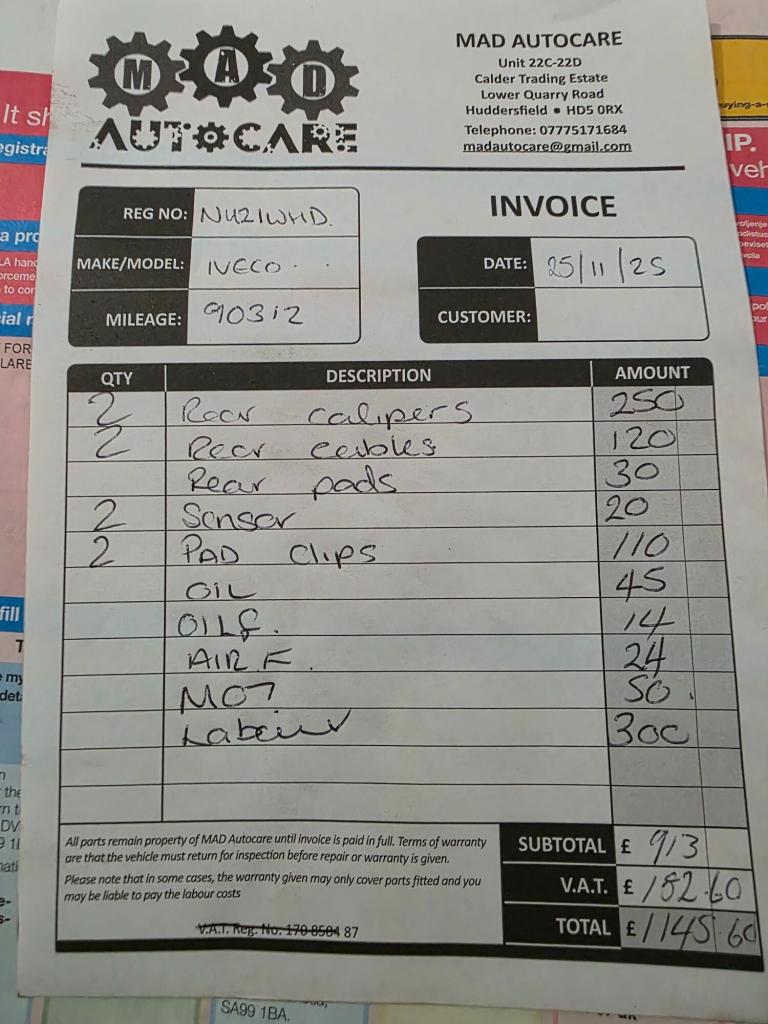 MAD
AUTOCARE
MAD AUTOCARE
Unit 22C-22D
Calder Trading Estate
Lower Quarry Road
Huddersfield • HD5 0RX
Telephone: 07775171684
madautocare@gmail.com
INVOICE
REG NO: NU21WHD.
MAKE/MODEL: IVECO
MILEAGE: 90312
DATE: 25/11/25
CUSTOMER:
QTY DESCRIPTION AMOUNT
2 Rear calipers 250
2 Rear 120
Rear pads 30
2 Sensor 20
2 PAD clips 110
OIL 45
OIL F. 14
AIR F. 24
MOT 50.
Labour 300
All parts remain property of MAD Autocare until invoice is paid in full. Terms of warranty
are that the vehicle must return for inspection before repair or warranty is given.
Please note that in some cases, the warranty given may only cover parts fitted and you
may be liable to pay the labour costs
V.A.T. Reg. No. 170 8584 87
SUBTOTAL £ 913
V.A.T. £ 182.60
TOTAL £ 1145.60
It sh
egistra
a pro
LA hand
to con
cial r
FOR
LARE
fill
IP.
veh
uying-a-
SA99 1BA.